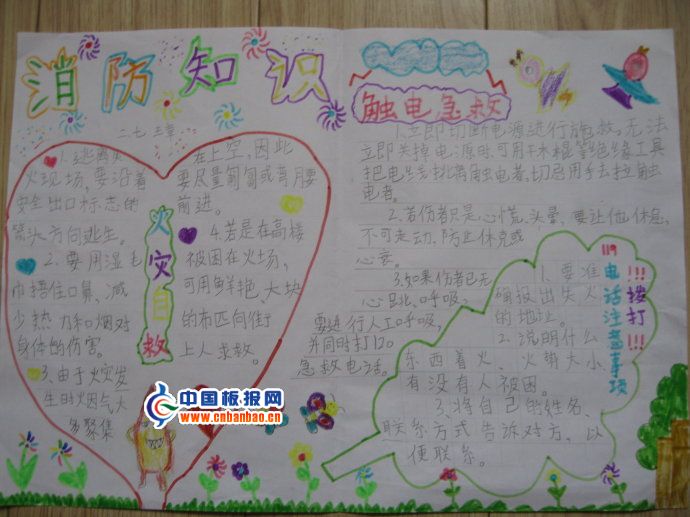 消防知识
二七 王章
1.逃离火
火现场,要沿着
安全出口标志的
箭头方向逃生。
2.要用湿毛
巾捂住口鼻、减
少热力和烟对
身体的伤害。
3.由于火灾发
生时烟气大
多聚集
火灾自救
在上空,因此
要尽量匍匐或弯腰
前进。
4.若是在高楼
被困在火场,
可用鲜艳、大块
的布匹向街
上人求救。
触电急救
1.立即切断电源进行施救,无法
立即关掉电源时,可用干木棍等绝缘工具
把电线挑离触电者,切忌用手去拉触
电者。
2.若伤者只是心慌、头晕,要让他休息,
不可走动,防止休克或
心衰。
3.如果伤者已无
心跳、呼吸,
要进行人工呼吸,
并同时打120
急救电话。
1.要准
确报出失火
的地址。
2.说明什么
东西着火、火势大小、
有没有人被困。
3.将自己的姓名、
联系方式告诉对方,以
便联系。
119
电话注意事项
!!!拨打!!!
中国板报网
www.cnbanbao.cn